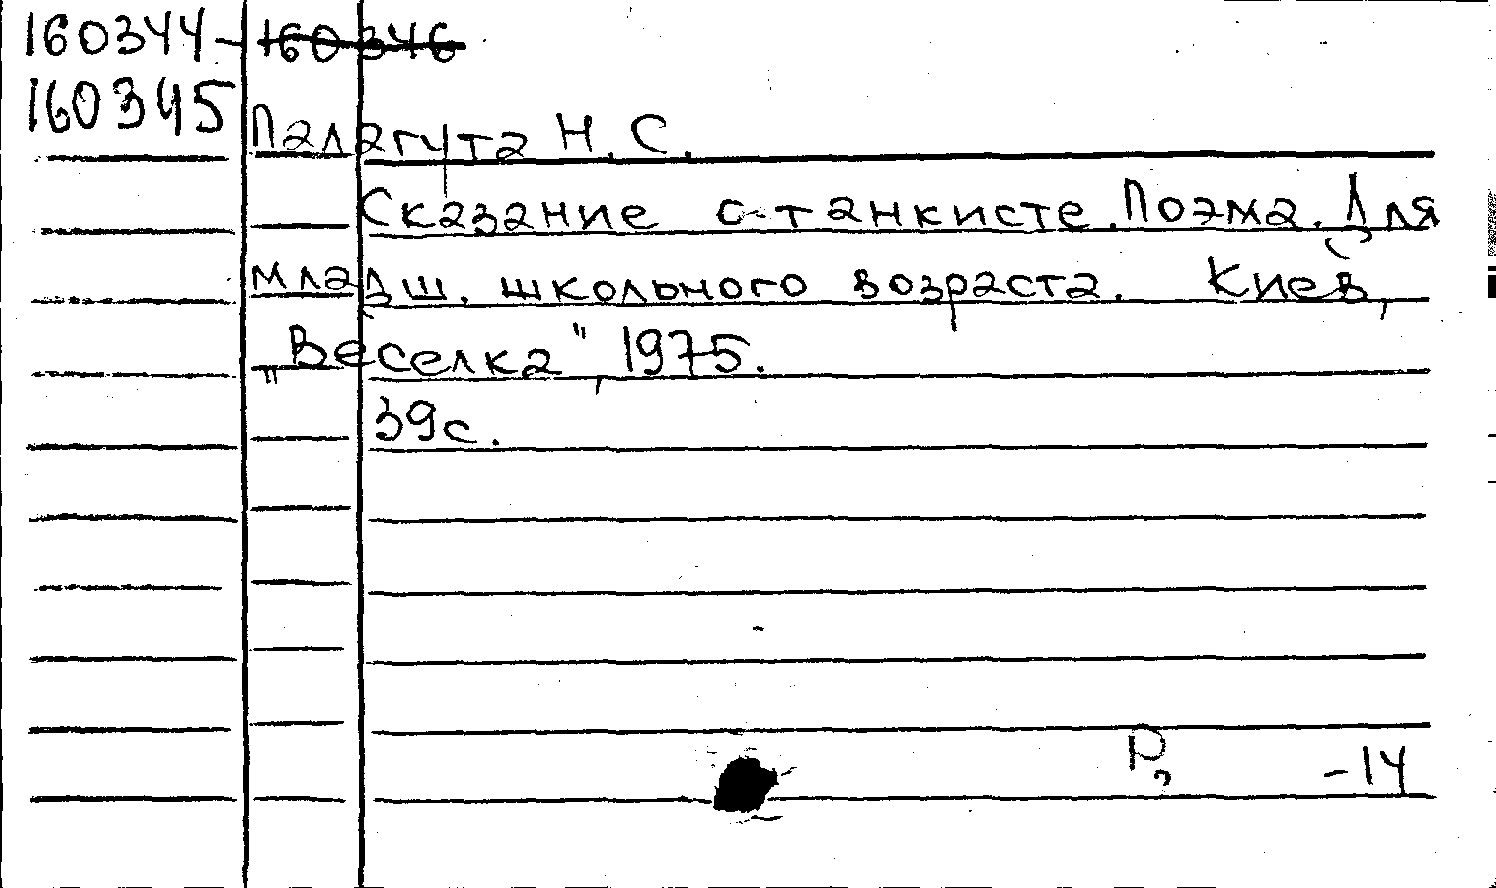 160344-160346
160345
Палагута Н. С.
Сказание о танкисте. Поэма. Для
младш. школьного возраста. Киев,
„Веселка", 1975.
39с.
Р2 -14